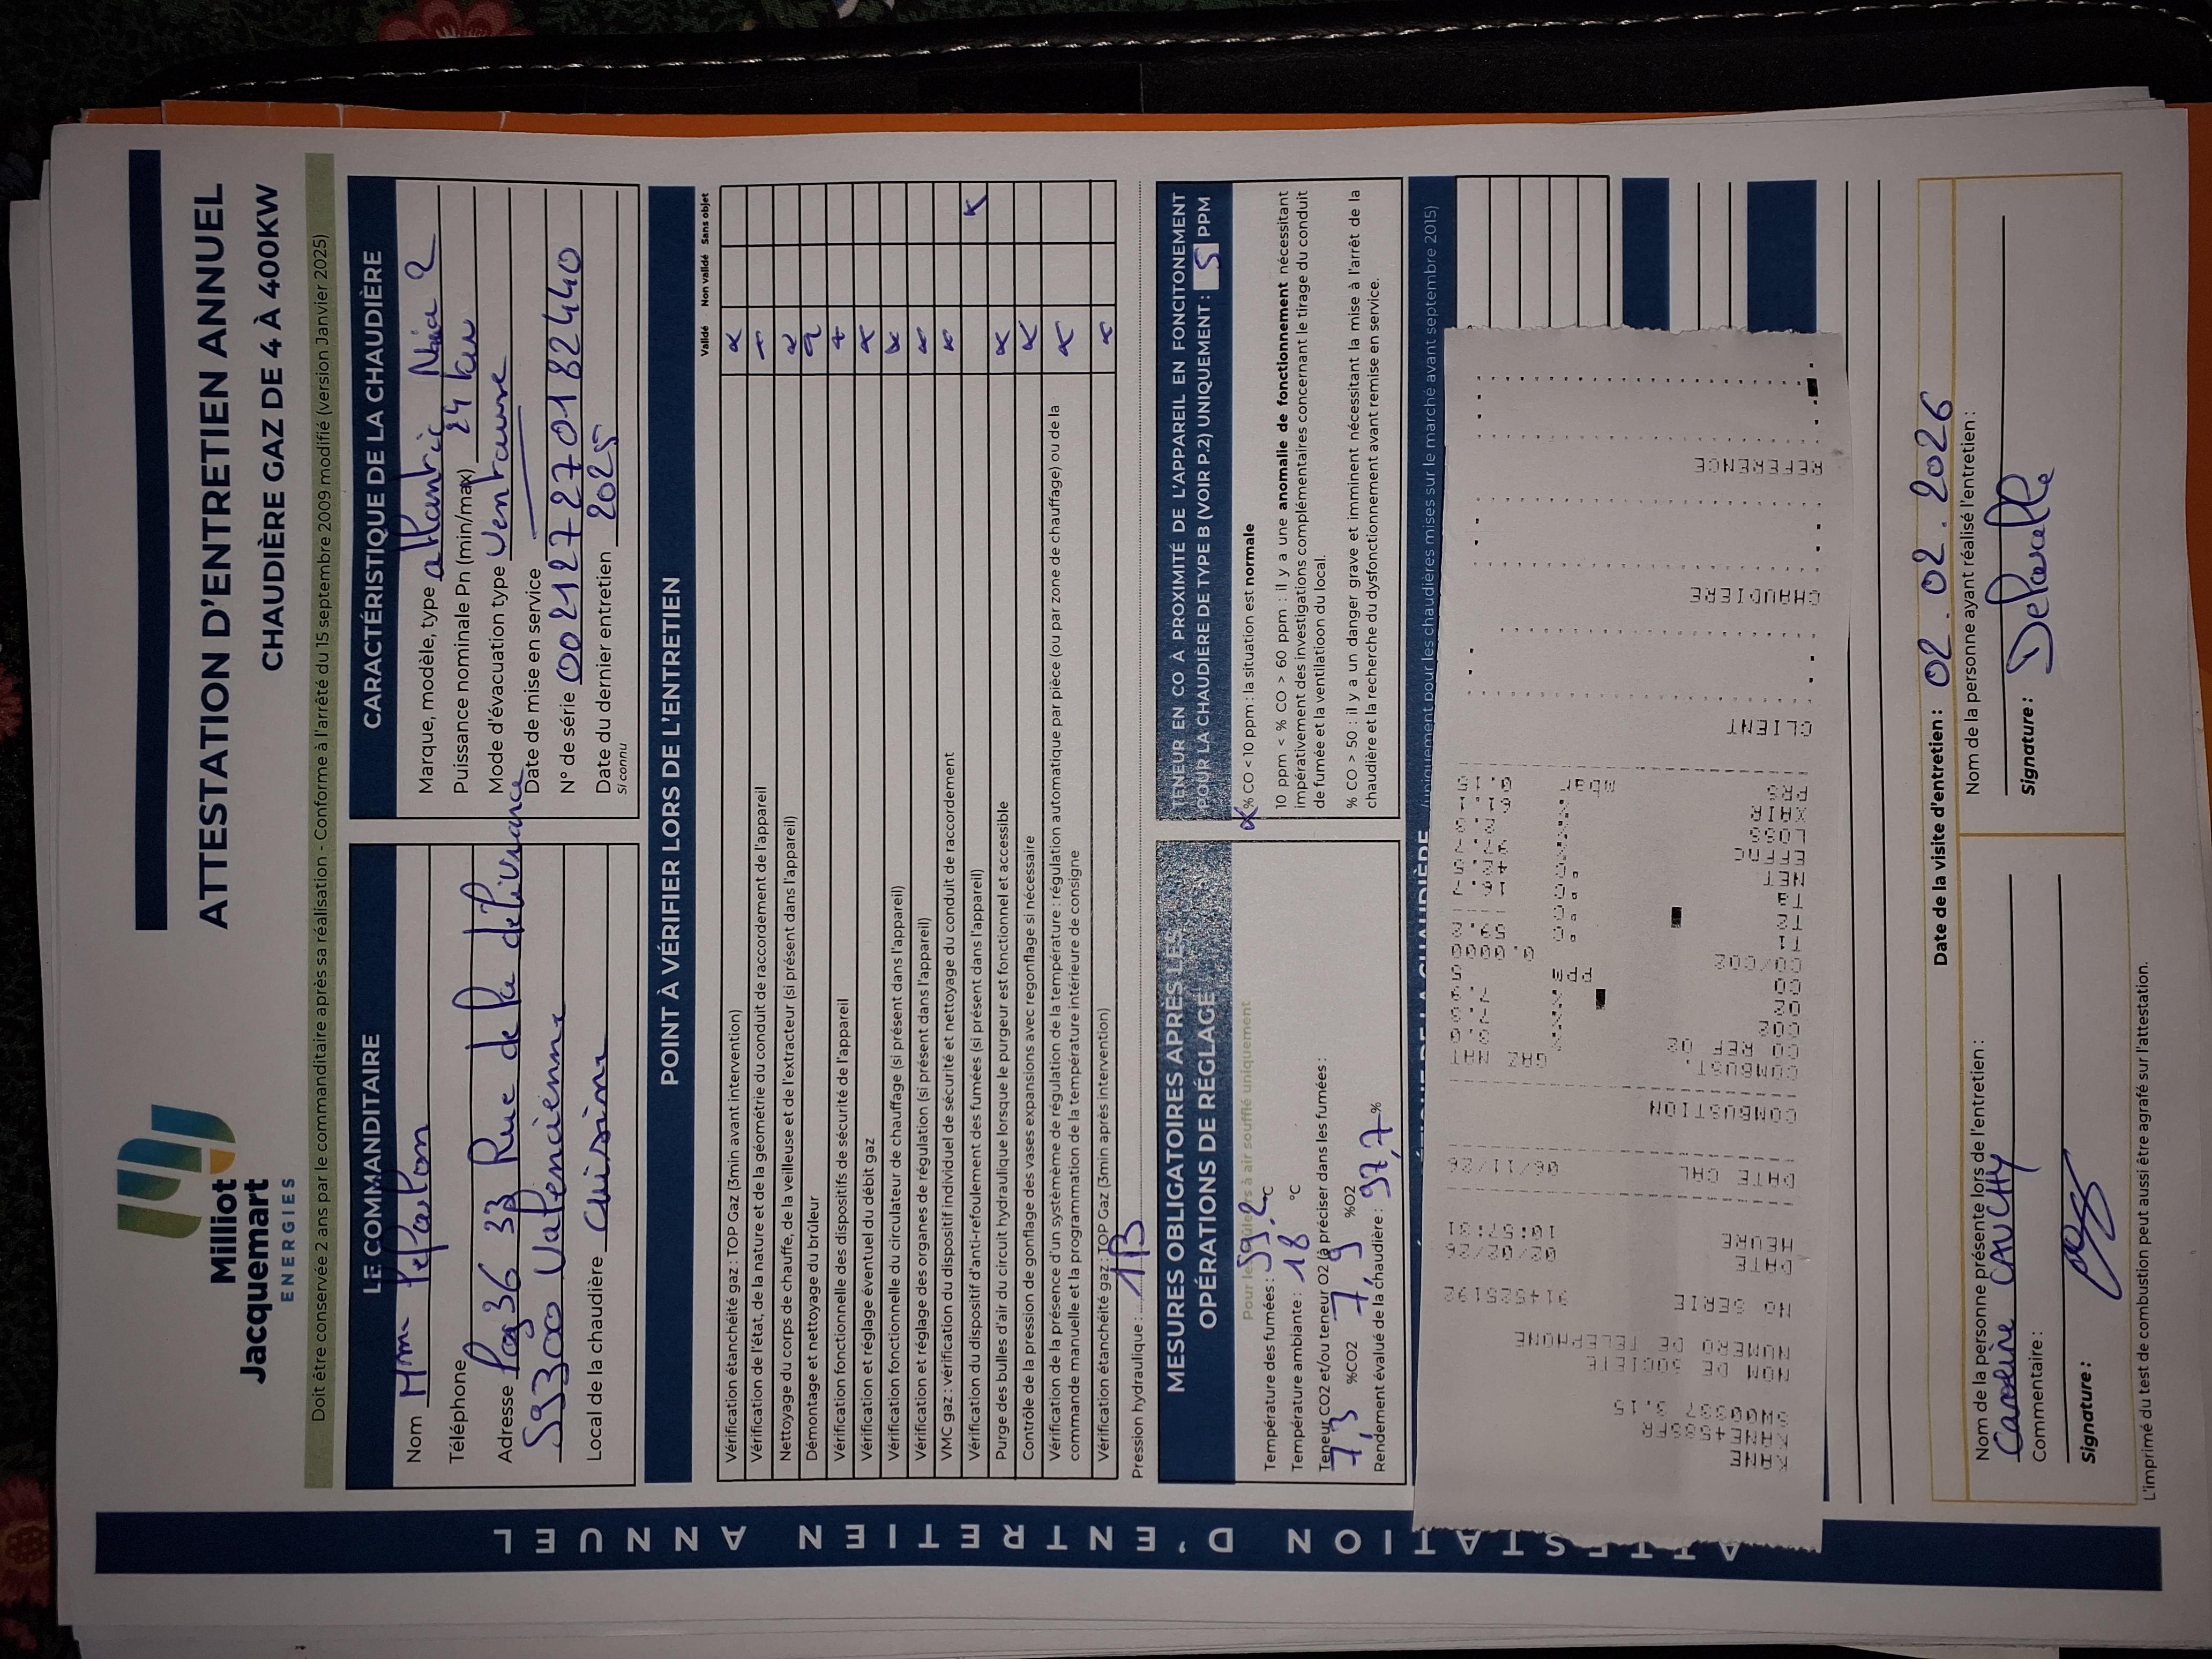 Milliot
Jacquemart
ENERGIES
ATTESTATION D'ENTRETIEN ANNUEL
CHAUDIÈRE GAZ DE 4 À 400KW
Doit être conservée 2 ans par le commanditaire après sa réalisation - Conforme à l'arrêté du 15 septembre 2009 modifié (version Janvier 2025)
ATTESTATION D'ENTRETIEN ANNUEL
LE COMMANDITAIRE
Nom Mme
Téléphone
Adresse 33 Rue de la délivrance
59300 Valenciennes
Local de la chaudière Cuisine
CARACTÉRISTIQUE DE LA CHAUDIÈRE
Marque, modèle, type atlantic Naia 2
Puissance nominale Pn (min/max) 24 kw
Mode d'évacuation type Ventouse
Date de mise en service
N° de série 002127270182440
Date du dernier entretien 2025
si connu
POINT À VÉRIFIER LORS DE L'ENTRETIEN
Validé Non validé Sans objet
Vérification étanchéité gaz : TOP Gaz (3min avant intervention)
Vérification de l'état, de la nature et de la géométrie du conduit de raccordement de l'appareil
Nettoyage du corps de chauffe, de la veilleuse et de l'extracteur (si présent dans l'appareil)
Démontage et nettoyage du brûleur
Vérification fonctionnelle des dispositifs de sécurité de l'appareil
Vérification et réglage éventuel du débit gaz
Vérification fonctionnelle du circulateur de chauffage (si présent dans l'appareil)
Vérification et réglage des organes de régulation (si présent dans l'appareil)
VMC gaz : vérification du dispositif individuel de sécurité et nettoyage du conduit de raccordement
Vérification du dispositif d'anti-refoulement des fumées (si présent dans l'appareil)
Purge des bulles d'air du circuit hydraulique lorsque le purgeur est fonctionnel et accessible
Contrôle de la pression de gonflage des vases expansions avec regonflage si nécessaire
Vérification de la présence d'un système de régulation de la température : régulation automatique par pièce (ou par zone de chauffage) ou de la
commande manuelle et la programmation de la température intérieure de consigne
Vérification étanchéité gaz : TOP Gaz (3min après intervention)
Pression hydraulique : 1B
MESURES OBLIGATOIRES APRÈS LES
OPÉRATIONS DE RÉGLAGE
Température des fumées : 59.2 °C
Température ambiante : 18 °C
Teneur CO2 et/ou teneur O2 (à préciser dans les fumées :
7,3 %CO2 7,9 %O2
Rendement évalué de la chaudière : 97,7 %
TENEUR EN CO À PROXIMITÉ DE L'APPAREIL EN FONCITONEMENT
POUR LA CHAUDIÈRE DE TYPE B (VOIR P.2) UNIQUEMENT : 5 PPM
% CO < 10 ppm : la situation est normale
10 ppm < % CO > 60 ppm : il y a une anomalie de fonctionnement nécessitant
impérativement des investigations complémentaires concernant le tirage du conduit
de fumée et la ventilatioon du local.
% CO > 50 : il y a un danger grave et imminent nécessitant la mise à l'arrêt de la
chaudière et la recherche du dysfonctionnement avant remise en service.
(uniquement pour les chaudières mises sur le marché avant septembre 2015)
KANE
KANE458SFR
NOM DE SOCIETE
NUMERO DE TELEPHONE
NO SERIE 914525192
DATE 02/02/26
HEURE 10:57:01
DATE CAL 06/11/26
COMBUSTION
COMBUST. GAZ NAT
CO REF O2
CO2 %
O2 %
CO ppm
CO/CO2 0.0000
T1 °C
T2 °C
Ta °C
NET °C
EFFNC %
LOSS %
XAIR %
PRS mbar
CLIENT
CHAUDIERE
REFERENCE
Date de la visite d'entretien : 02.02.2026
Nom de la personne présente lors de l'entretien :
CAUCHY
Commentaire :
Signature :
Nom de la personne ayant réalisé l'entretien :
Signature :
L'imprimé du test de combustion peut aussi être agrafé sur l'attestation.